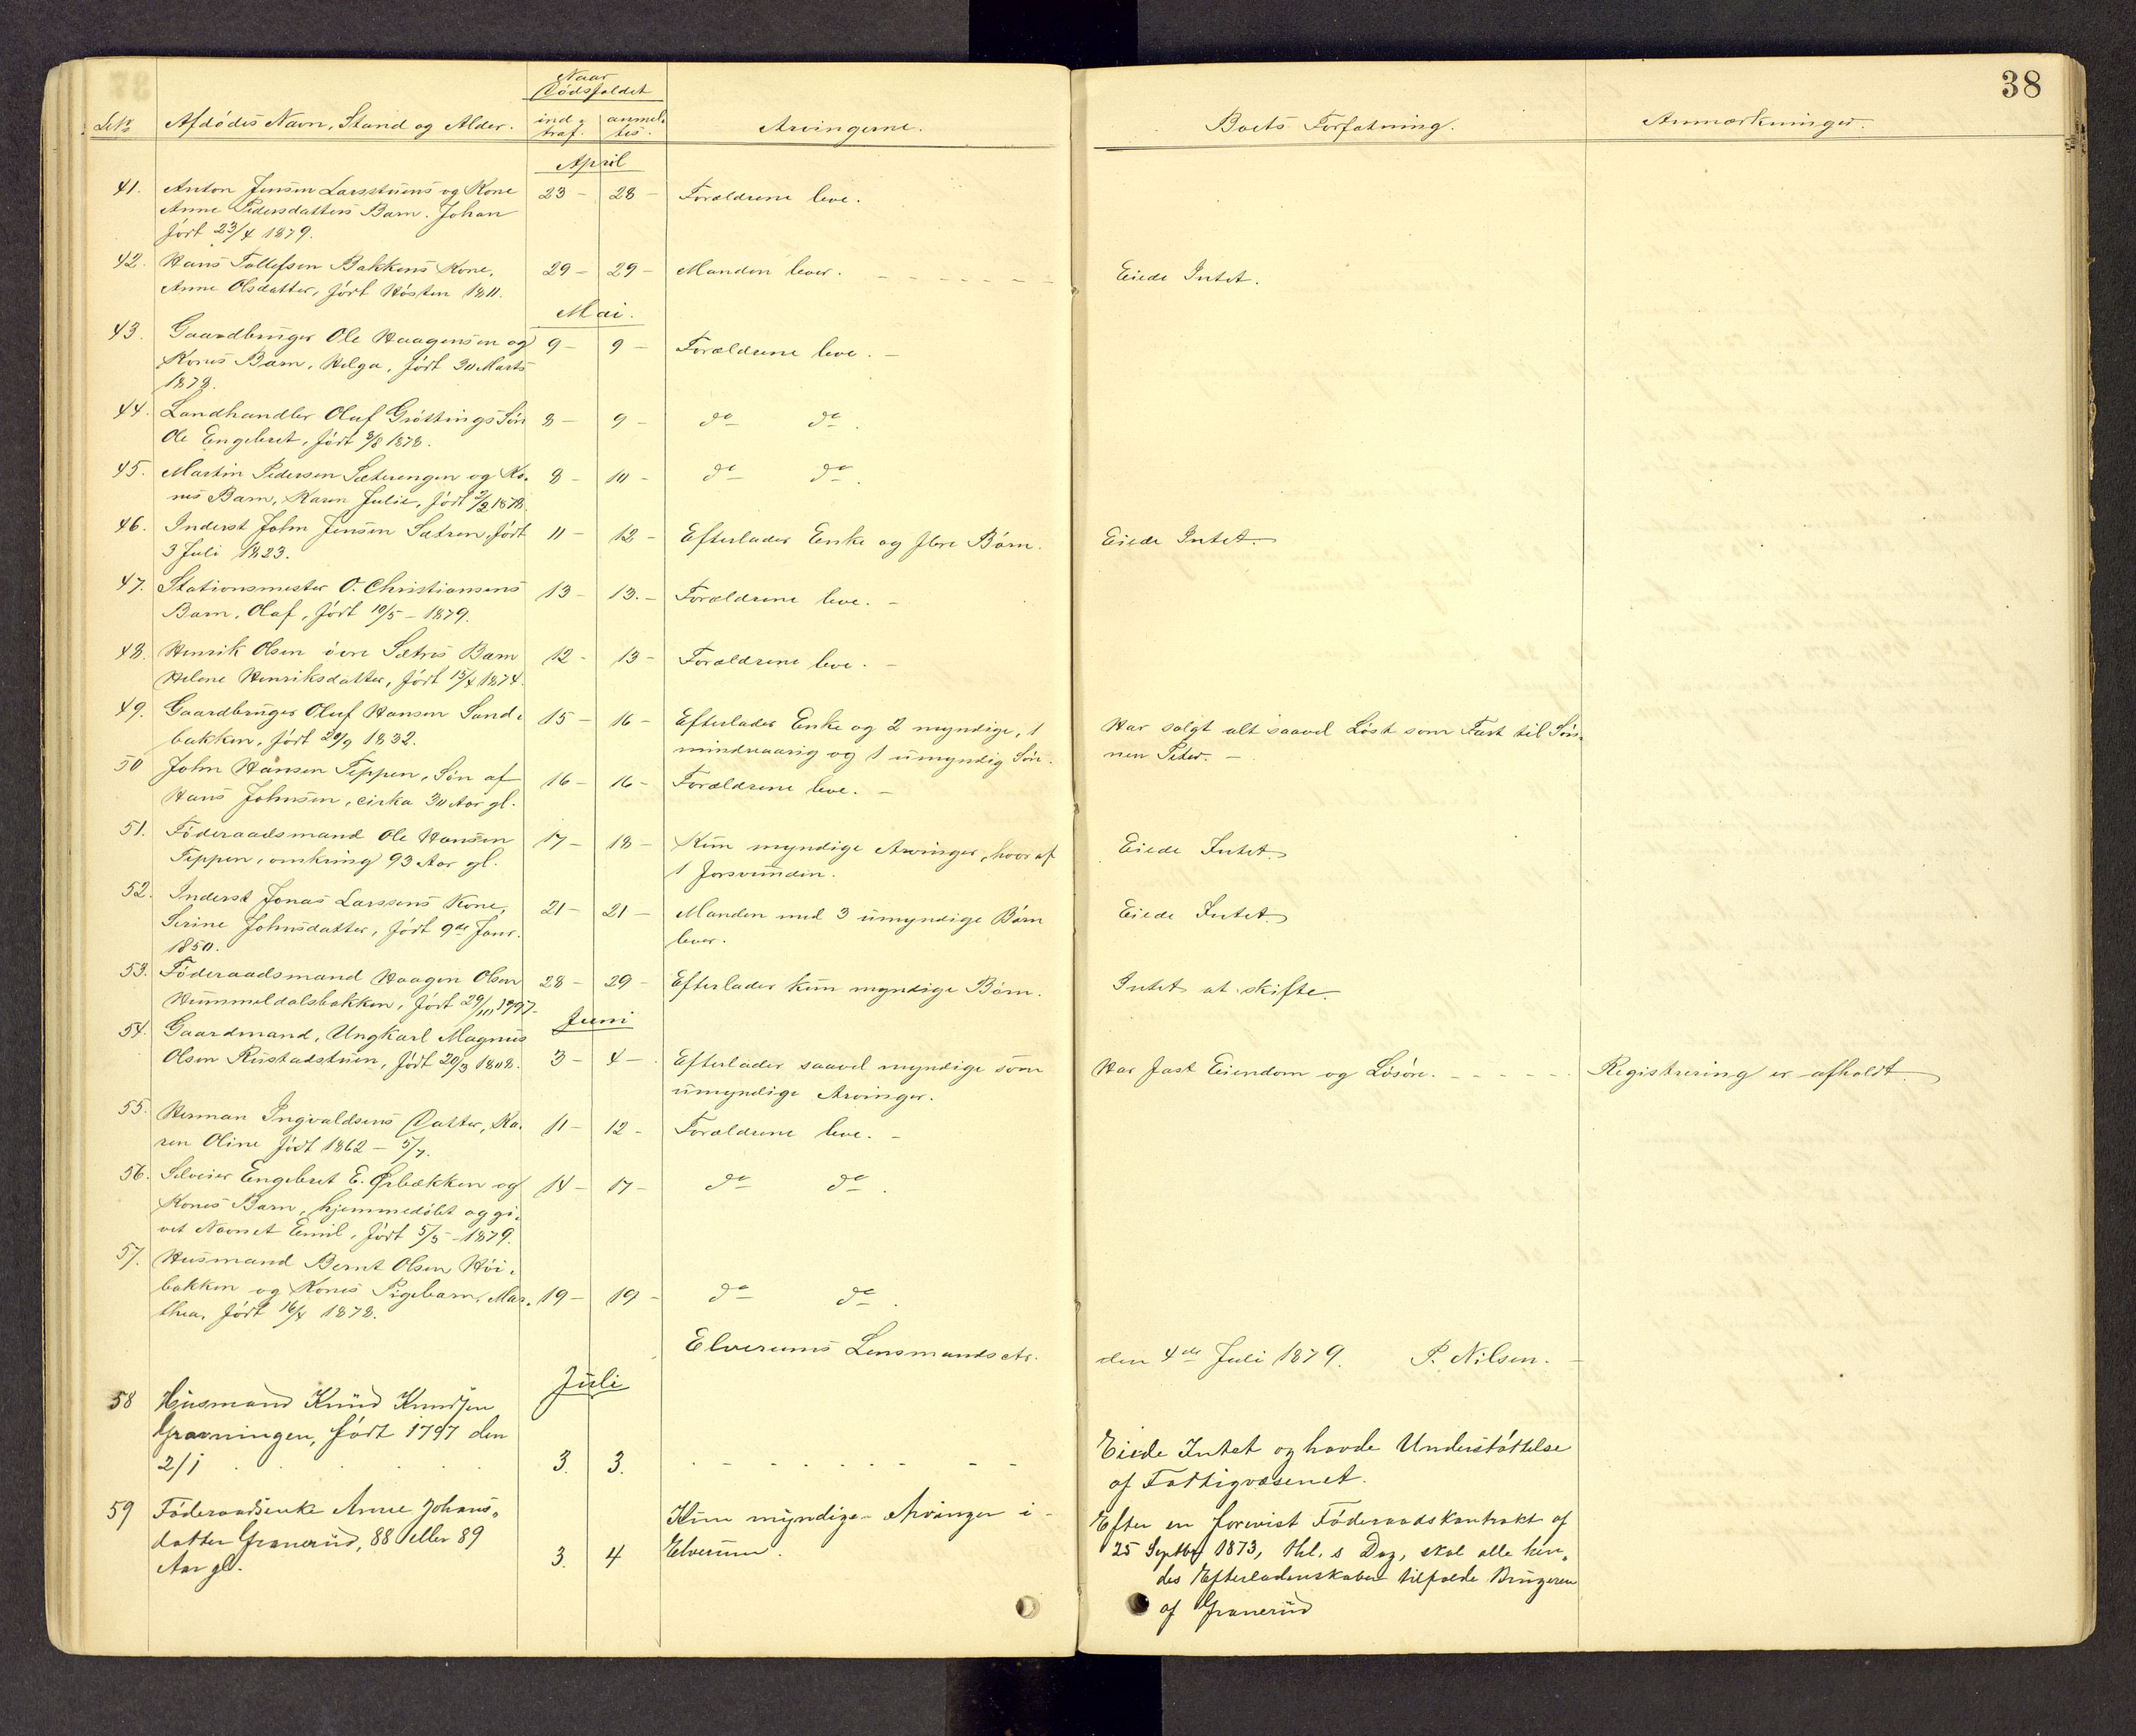 38
Naar
Dødsfaldet
LNo Afdødes Navn, Stand og Alder. ind- anmel- Arvingerne. Boets Forfatning. Anmærkninger.
traf. tes.
April
41. Anton Jensen Larsstuens og Kone 23 - 28 - Forældrene leve.
Anne Pedersdatters Barn. Johan
født 23/4 1879.
42. Hans Tollefsen Bakkens Kone, 29 - 29 - Manden lever. Eiede Intet.
Anne Olsdatter, født Høsten 1811.
Mai.
43. Gaardbruger Ole Haagensen og 9 - 9 - Forældrene leve. -
Kones Barn, Helga, født 30 Marts
1878.
44. Landhandler Oluf Grøttings Søn 8 - 9 - do do.
Ole Engebret, født 3/8 1878.
45. Martin Pedersen Sæterengen og Ko- 8 - 10 - do do.
nes Barn, Karen Julie, født 2/2 1878.
46. Inderst John Jensen Sætren, født 11 - 12 - Efterlader Enke og flere Børn. Eiede Intet.
3 Juli 1823.
47. Stationsmester O. Christiansens 13 - 13. - Forældrene leve. -
Barn, Olaf, født 10/5 - 1879.
48. Henrik Olsen øvre Sætres Barn 12 - 13 - Forældrene leve. -
Helene Henriksdatter, født 15/4 1874.
49. Gaardbruger Oluf Hansen Sand- 15 - 16 - Efterlader Enke og 2 myndige, 1 Har solgt alt saavel Løst som Fast til Søn-
bakken, født 20/9 1832. mindreaarig og 1 umyndig Søn. nen Peter. -
50 John Hansen Teppen, Søn af 16 - 16 - Forældrene leve. -
Hans Johnsen, cirka 30 Aar gl.
51. Føderaadsmand Ole Hansen 17 - 18 - Kun myndige Arvinger, hvoraf Eiede Intet.
Teppen, omkring 93 Aar gl. 1 forsvunden.
52. Inderst Jonas Larssens Kone, 21 - 21 - Manden med 3 umyndige Børn Eiede Intet.
Serine Johnsdatter, født 9de Janr. lever.
1850.
53. Føderaadsmand Haagen Olsen 28 - 29 - Efterlader kun myndige Børn. Intet at skifte.
Hummeldalsbakken, født 29/10 1797.
Juni
54. Gaardmand, Ungkarl Magnus
Olsen Rustadstuen, født 20/3 1808. 3 - 4 - Efterlader saavel myndige som Har fast Eiendom og Løsøre. - - - - - Registrering er afholdt.
umyndige Arvinger.
55. Herman Ingvaldsens Datter, Ka- 11 - 12 - Forældrene leve. -
ren Oline født 1862 - 5/7.
56. Selveier Engebret E. Ørbækken og 14 - 17 - do do.
Kones Barn, hjemmedøbt og gi-
vet Navnet Emil, født 5/5 - 1879.
57. Husmand Bernt Olsen Høi-
bakken og Kones Pigebarn, Mar- 19 - 19 - do do.
thea, født 16/4 1878.
Elverums Lensmandsetr. den 4de Juli 1879. P. Nilsen. -
Juli
58 Husmand Knud Knudsen
Gravningen, født 1797 den Eiede Intet og havde Understøttelse
2/1 3. 3. af Fattigvæsenet.
59 Føderaadsenke Anne Johans- Kun myndige Arvinger i Efter en forevist Føderaadskontrakt af
datter Granerud, 88 eller 89 3. 4 Elverum. 25 Septbr 1873, thl. s Dag, skal alle hen-
Aar gl. des Efterladenskaber tilfalde Brugeren
af Granerud